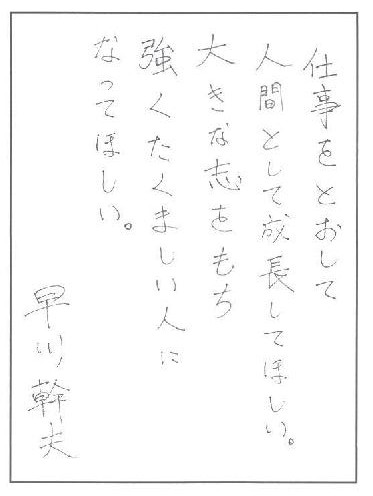 仕事をとおして
人間として成長してほしい。
大きな志をもち
強くたくましい人に
なってほしい。
早川幹夫